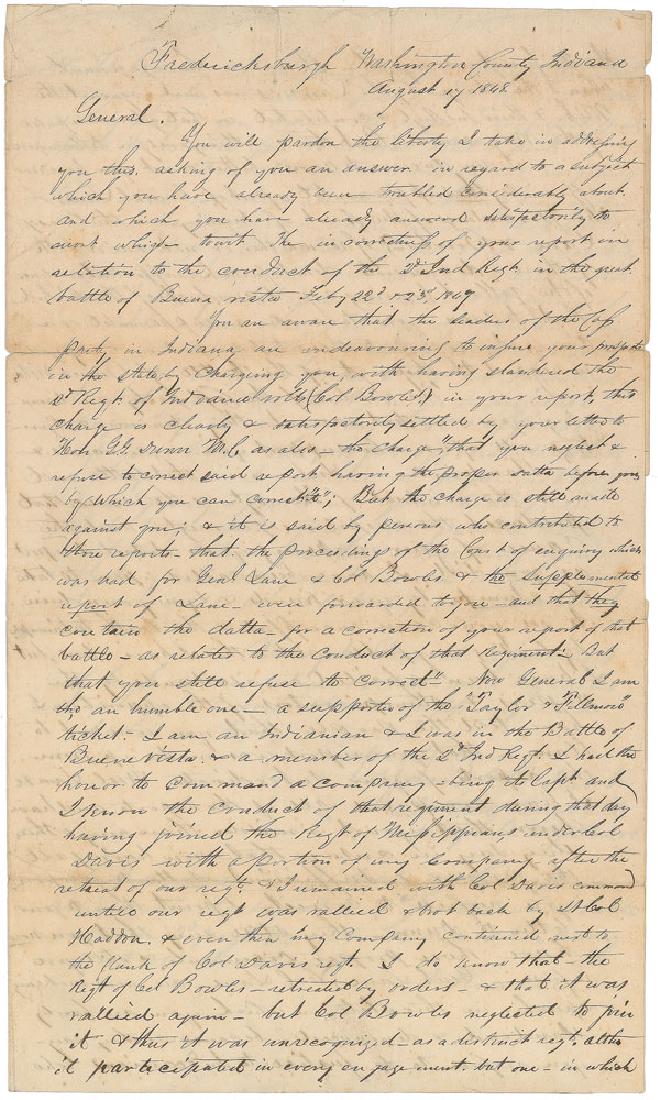 Fredericksburgh Washington County, Indiana
August 17 1848
General.
You will pardon the liberty I take in addressing
you thus. asking of you an answer in regard to a subject
which you have already been troubled considerably about.
and which you have already answered satisfactorily to
every whig - towit. The incorrectness of your report in
relation to the conduct of the 2d Ind Regt. in the great
battle of Buena vista Feby 22d & 23d
You are aware that the leaders of the
party in Indiana are endeavouring to injure your prospects
in the state by charging you, with having slandered the
2d Regt. of Indiana vols (Col Bowles.) in your report, this
charge is clearly & satisfactorily settled by your letter to
Hon G.G. Dunn M.C. as also - the charge, "that you neglect &
refuse to correct said report having the proper datta before you,
by which you can correct it"; But the charge is still made
against you; & it is said by persons who contributed to
those reports - that. the proceedings of the Court of enquiry which
was had for Genl Lane & Col Bowles & the Supplemental
report of Lane - were forwarded to you - and that they
contain the datta - for a correction of your report of that
battle - as relates to the conduct of that Regiment: But
that you still refuse to correct" - Now General I am
an humble one - a supporter of the "Taylor & Fillmore"
ticket - I am an Indianian & I was in the Battle of
Buena Vista. & a member of the 2d Ind Regt. I had the
honor to command a company - being its Capt and
I know the conduct of that regiment during that day
having joined the Regt of Missippians under Col
Davis with a portion of my Company - after the
retreat of our regt. & I remained with Col Davis command
untill our regt was rallied & brot back by Lt Col
Haddon. & even then my Company continued next to
the flank of Col Davis regt. I do know that - the
Regt of Col Bowles - retreated by orders - & that it was
rallied again - but Col Bowles neglected to join
it & thus it was unrecognized - as a distinct regt, altho
it participated in every engagement. but one - in which